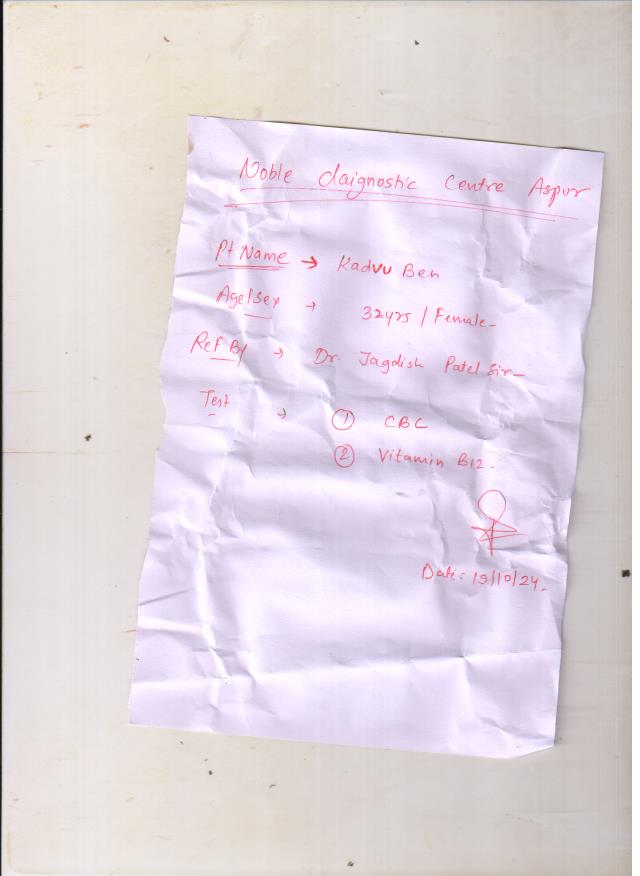 Noble daignostic Centre Aspur
Pt Name → Kadvu Ben
Age/Sex → 32yrs / Female-
Ref By → Dr. Jagdish Patel Sir-
Test → ① CBC
② Vitamin B12-
Date: 19/10/24.